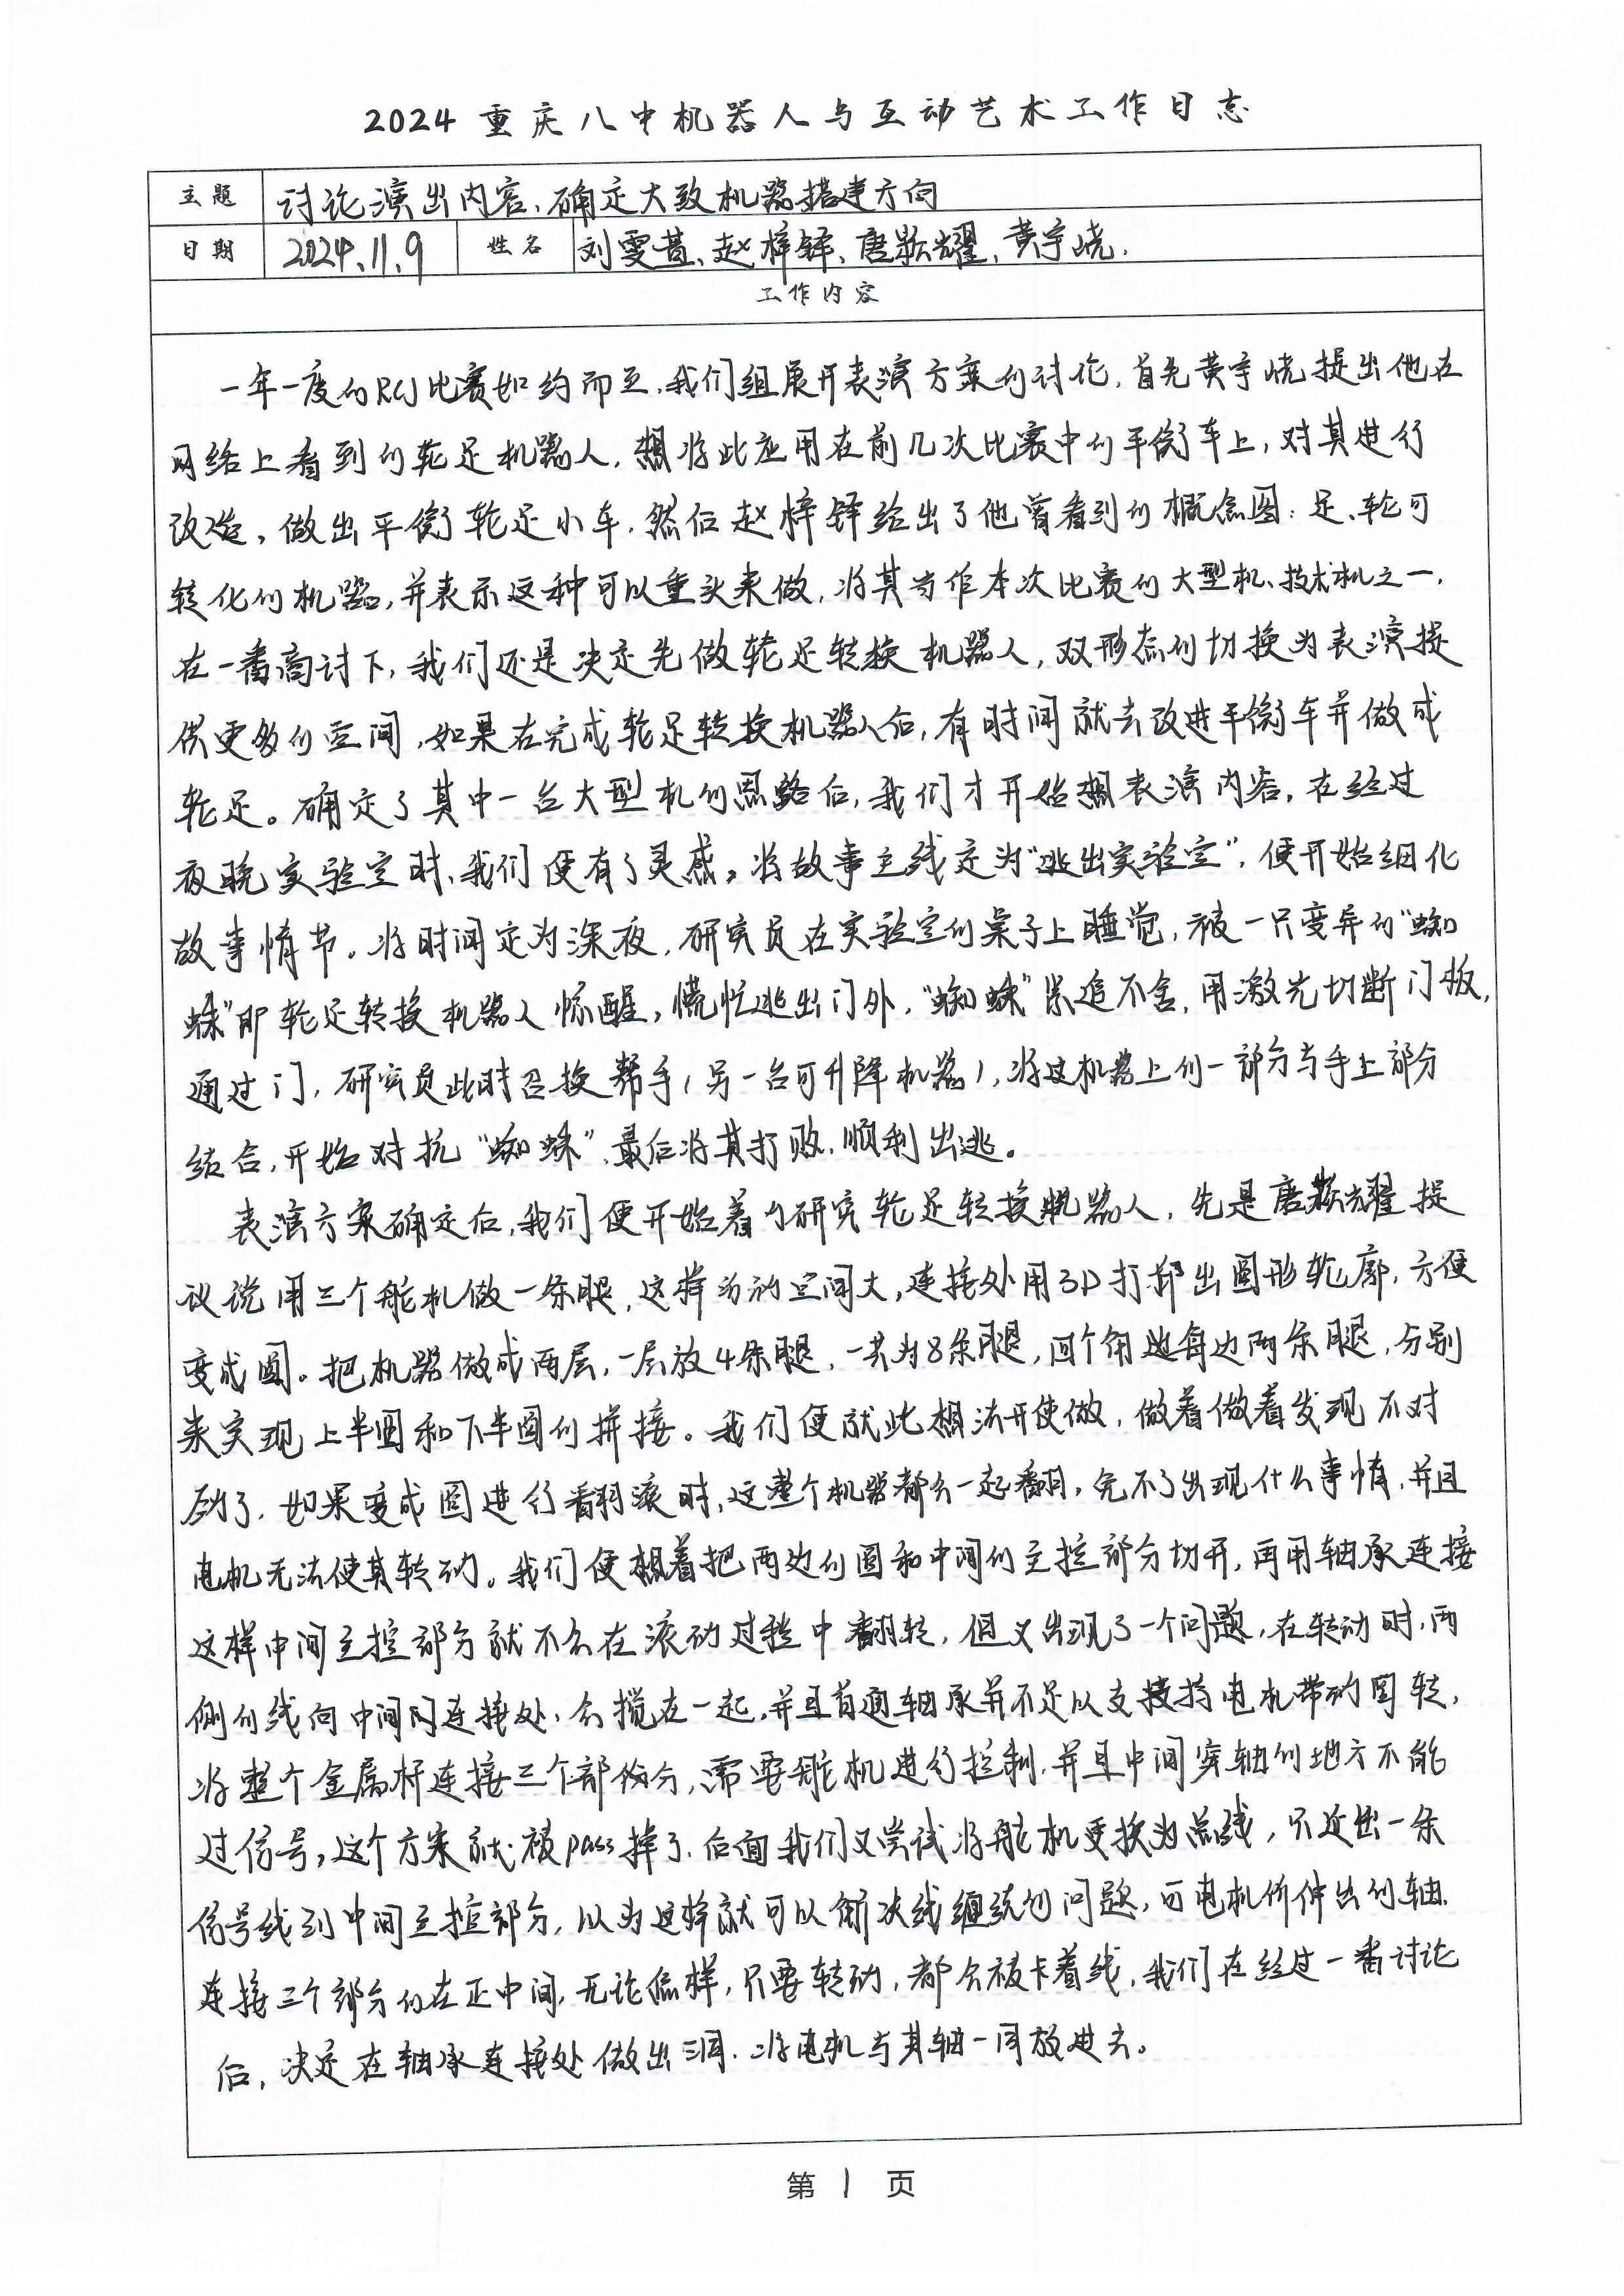 2024重庆八中机器人与互动艺术工作日志
主题 讨论演出内容、确定大致机器搭建方向
日期 2024.11.9 姓名 刘雯萱、赵梓铎、唐颢耀、黄宇晓.
工作内容
一年一度的RCJ比赛如约而至,我们组展开表演方案的讨论,首先黄宇晓提出他在
网络上看到的轮足机器人,想将此应用在前几次比赛中的平衡车上,对其进行
改造,做出平衡轮足小车.然后赵梓铎给出了他曾看到的概念图:足、轮可
转化的机器,并表示这种可以重头来做,将其当作本次比赛的大型机、技术机之一.
在一番商讨下,我们还是决定先做轮足转换机器人,双形态的切换为表演提
供更多的空间,如果在完成轮足转换机器人后,有时间就去改进平衡车并做成
轮足。确定了其中一台大型机的思路后,我们才开始想表演内容,在经过
夜晚实验室时,我们便有了灵感,将故事主线定为“逃出实验室”,便开始细化
故事情节。将时间定为深夜,研究员在实验室的桌子上睡觉,被一只变异的“蜘
蛛”即轮足转换机器人惊醒,慌忙逃出门外,“蜘蛛”紧追不舍,用激光切断门板,
通过门,研究员此时召换帮手(另一台可升降机器),将这机器上的一部分与手上部分
结合,开始对抗“蜘蛛”,最后将其打败,顺利出逃。
表演方案确定后,我们便开始着手研究轮足转换机器人,先是唐颢耀提
议说用三个舵机做一条腿,这样活动空间大,连接处用3D打印出圆形轮廓,方便
变成圆。把机器做成两层,一层放4条腿,一共为8条腿,四个角边每边两条腿,分别
来实现上半圆和下半圆的拼接。我们便就此想法开使做,做着做着发现不对
劲了,如果变成圆进行翻滚时,这整个机器都会一起翻,免不了出现什么事情,并且
电机无法使其转动。我们便想着把两边的圆和中间的主控部分切开,再用轴承连接
这样中间主控部分就不会在滚动过程中翻转,但又出现了一个问题,在转动时,两
侧的线向中间的连接处,会搅在一起,并且普通轴承并不足以支持电机带动圆转,
将整个金属杆连接三个部分,需要舵机进行控制,并且中间穿轴的地方不能
过信号,这个方案就被pass掉了.后面我们又尝试将舵机更换为总线,只延出一条
信号线到中间主控部分,以为这样就可以解决线缠绕的问题,可电机所伸出的轴
连接三个部分的在正中间,无论怎样,只要转动,都会被卡着线,我们在经过一番讨论
后,决定在轴承连接处做出洞,将电机与其轴一同放进去。
第1页